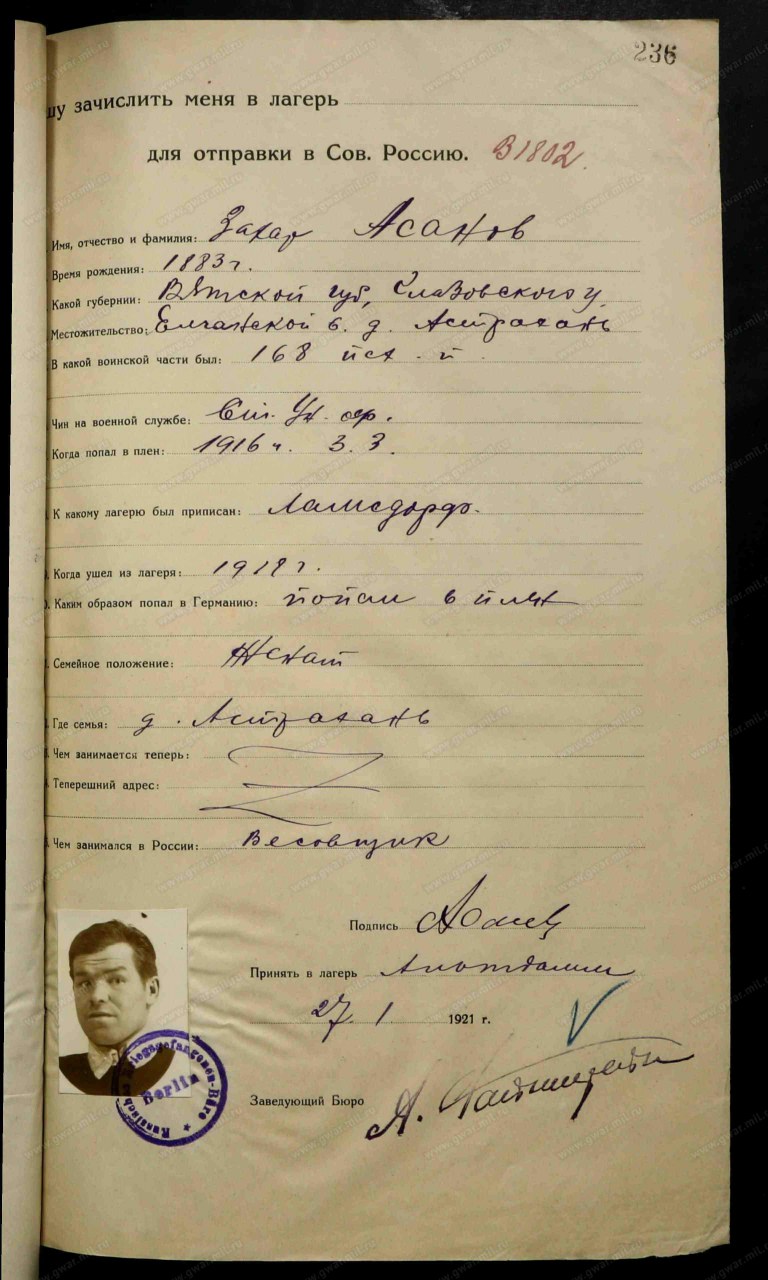 236
шу зачислить меня в лагерь
для отправки в Сов. Россию. В1802
Имя, отчество и фамилия: Захар Асанов
Время рождения: 1883 г.
Какой губернии: Вятской губ, Глазовского у.
Местожительство: в. д. Астрахань
В какой воинской части был: 168 пех. п.
Чин на военной службе: Ст. Ун. оф.
Когда попал в плен: 1916 г. 3. 3.
К какому лагерю был приписан: Ламсдорф.
Когда ушел из лагеря: 1918 г.
Каким образом попал в Германию: попал в плен
Семейное положение: Женат
Где семья: д. Астрахань
Чем занимается теперь:
Теперешний адрес:
Чем занимался в России: Весовщик
Подпись
Принять в лагерь
27. 1 1921 г.
Заведующий Бюро А.
Russisches Kriegsgefangenen-Büro
Berlin
www.gwar.mil.ru